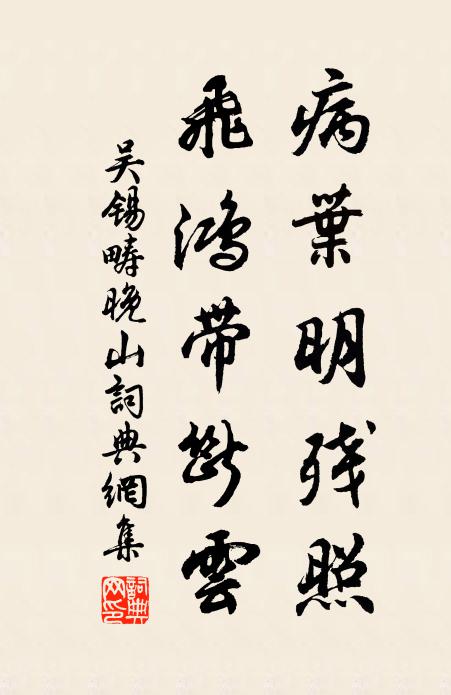 病葉明残照
飛鴻帶斷雲
吴錫疇晚山詞典網集
詞典网印